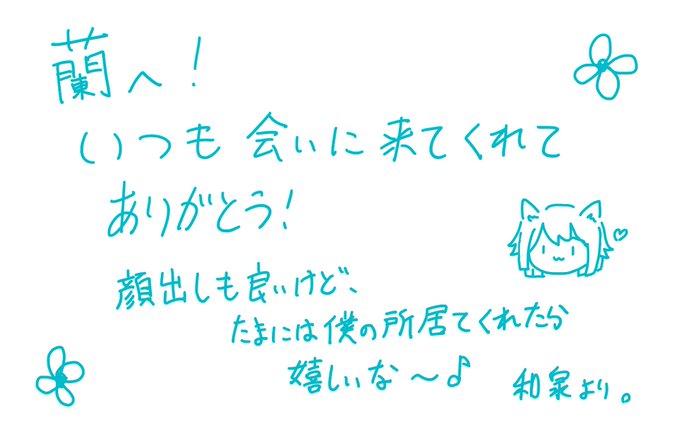 蘭へ!
いつも会いに来てくれて
ありがとう!
顔出しも良いけど、
たまには僕の所居てくれたら
嬉しいな〜♪
和泉より。